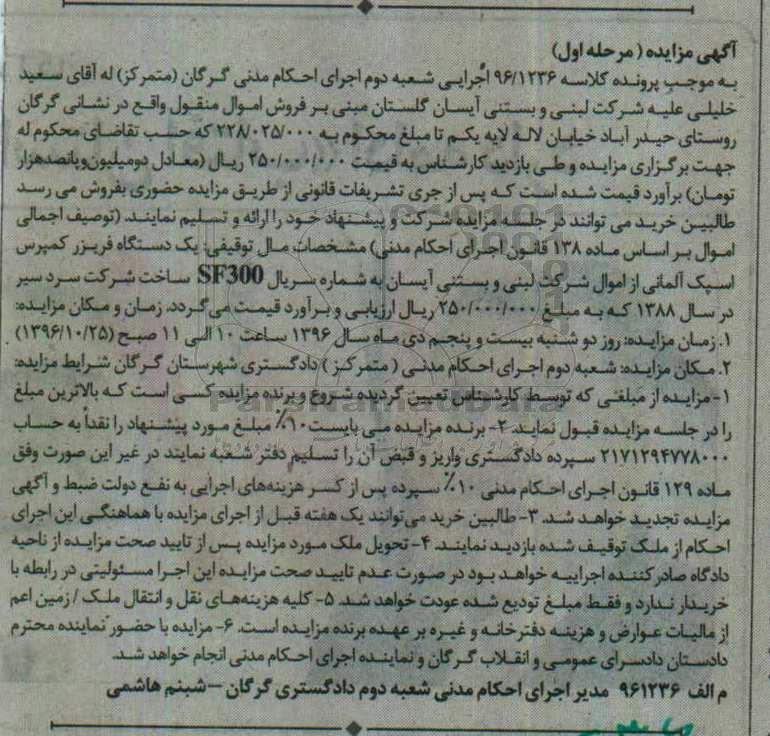 آگهی مزایده ( مرحله اول)
به موجب پرونده کلاسه ۹۶/۱۲۳۶ اجرایی شعبه دوم اجرای احکام مدنی گرگان (متمرکز) له آقای سعید
خلیلی علیه شرکت لبنی و بستنی آیسان گلستان مبنی بر فروش اموال منقول واقع در نشانی گرگان
روستای حیدر آباد خیابان لاله لایه یکم تا مبلغ محکوم به ۲۲۸/۰۲۵/۰۰۰ که حسب تقاضای محکوم له
جهت برگزاری مزایده و طی بازدید کارشناس به قیمت ۲۵۰/۰۰۰/۰۰۰ ریال (معادل دومیلیون‌وپانصدهزار
تومان) برآورد قیمت شده است که پس از جری تشریفات قانونی از طریق مزایده حضوری بفروش می رسد
طالبین خرید می توانند در جلسه مزایده شرکت و پیشنهاد خود را ارائه و تسلیم نمایند. (توصیف اجمالی
اموال بر اساس ماده ۱۳۸ قانون اجرای احکام مدنی) مشخصات مال توقیفی: یک دستگاه فریزر کمپرس
اسپک آلمانی از اموال شرکت لبنی و بستنی آیسان به شماره سریال SF300 ساخت شرکت سرد سیر
در سال ۱۳۸۸ که به مبلغ ۲۵۰/۰۰۰/۰۰۰ ریال ارزیابی و برآورد قیمت می‌گردد. زمان و مکان مزایده:
۱. زمان مزایده: روز دو شنبه بیست و پنجم دی ماه سال ۱۳۹۶ ساعت ۱۰ الی ۱۱ صبح (۱۳۹۶/۱۰/۲۵)
۲. مکان مزایده: شعبه دوم اجرای احکام مدنی ( متمرکز ) دادگستری شهرستان گرگان شرایط مزایده:
۱- مزایده از مبلغی که توسط کارشناس تعیین گردیده شروع و برنده مزایده کسی است که بالاترین مبلغ
را در جلسه مزایده قبول نماید. ۲- برنده مزایده می بایست ۱۰٪ مبلغ مورد پیشنهاد را نقداً به حساب
۲۱۷۱۲۹۴۷۷۸۰۰۰ سپرده دادگستری واریز و قبض آن را تسلیم دفتر شعبه نمایند در غیر این صورت وفق
ماده ۱۲۹ قانون اجرای احکام مدنی ۱۰٪ سپرده پس از کسر هزینه‌های اجرایی به نفع دولت ضبط و آگهی
مزایده تجدید خواهد شد. ۳- طالبین خرید می‌توانند یک هفته قبل از اجرای مزایده با هماهنگی این اجرای
احکام از ملک توقیف شده بازدید نمایند. ۴- تحویل ملک مورد مزایده پس از تایید صحت مزایده از ناحیه
دادگاه صادرکننده اجراییه خواهد بود در صورت عدم تایید صحت مزایده این اجرا مسئولیتی در رابطه با
خریدار ندارد و فقط مبلغ تودیع شده عودت خواهد شد. ۵- کلیه هزینه‌های نقل و انتقال ملک / زمین اعم
از مالیات عوارض و هزینه دفترخانه و غیره بر عهده برنده مزایده است. ۶- مزایده با حضور نماینده محترم
دادستان دادسرای عمومی و انقلاب گرگان و نماینده اجرای احکام مدنی انجام خواهد شد.
م الف ۹۶۱۲۳۶ مدیر اجرای احکام مدنی شعبه دوم دادگستری گرگان – شبنم هاشمی